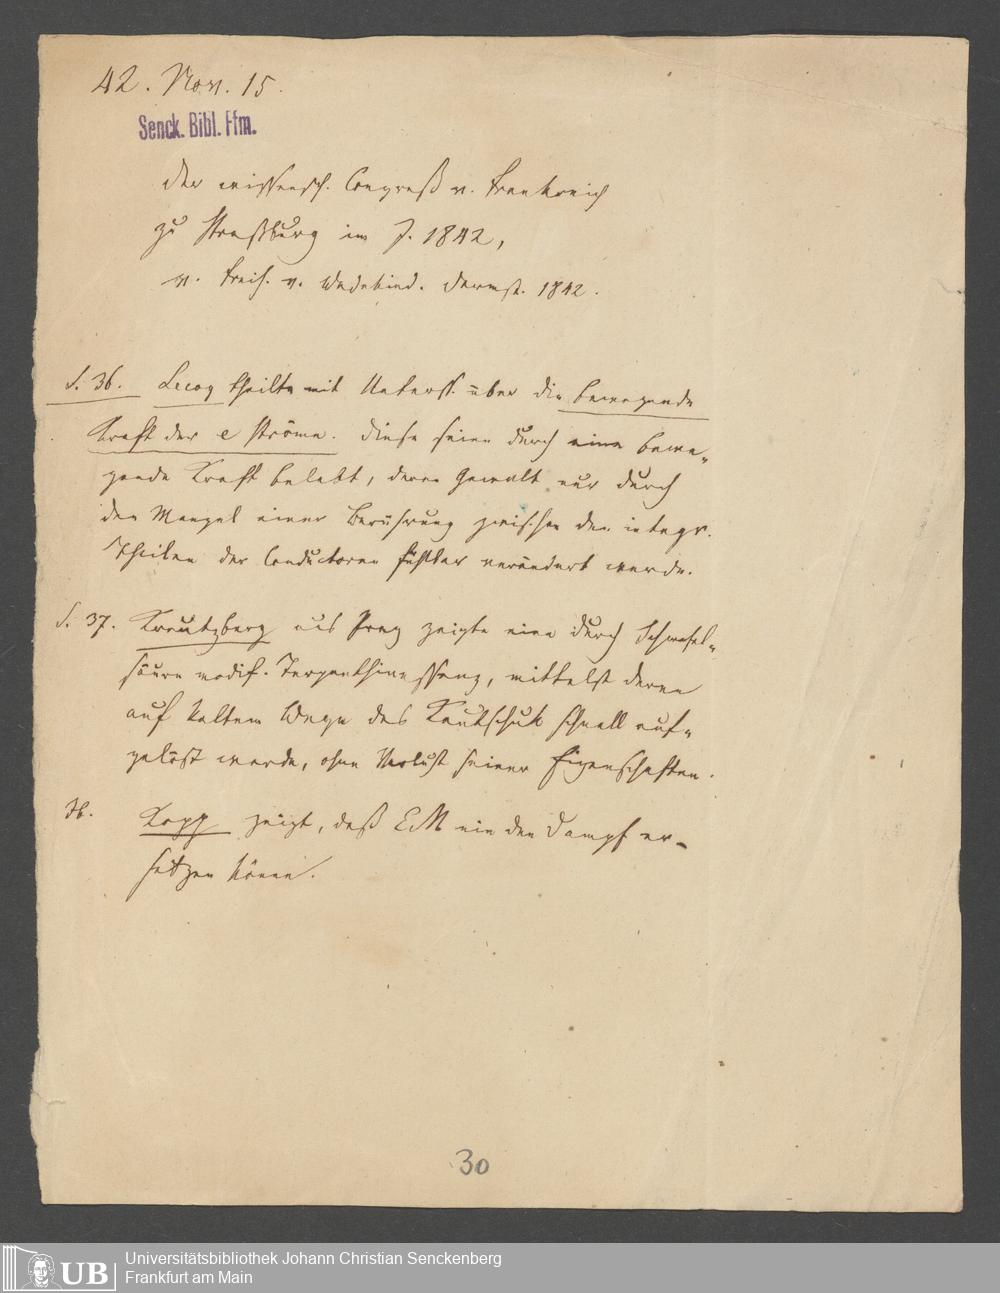 42. Nov. 15.
Senck. Bibl. Ffm.
Der wissensch. Congreß v. Frankreich
zu Straßburg im J. 1842,
v. Freih. v. Wedekind. Darmst. 1842.
S. 36. Lecoq theilte mit Unterss. über die bewegende
Kraft der e Ströme. Diese seien durch eine bewe-
gende Kraft belebt, deren Gewalt nur durch
den Mangel einer Berührung zwischen den integr.
Theilen der Conductoren fühlbar verändert werde.
S. 37. Kreutzberg aus Prag zeigte eine durch Schwefel-
säure modif. Terpenthinessenz, mittelst deren
auf kaltem Wege das Kautschuk schnell auf-
gelöst werde, ohne Verlust seiner Eigenschaften.
Ib. Kopp zeigt, daß EM nie den Dampf er-
setzen könne.
30
UB Universitätsbibliothek Johann Christian Senckenberg
Frankfurt am Main